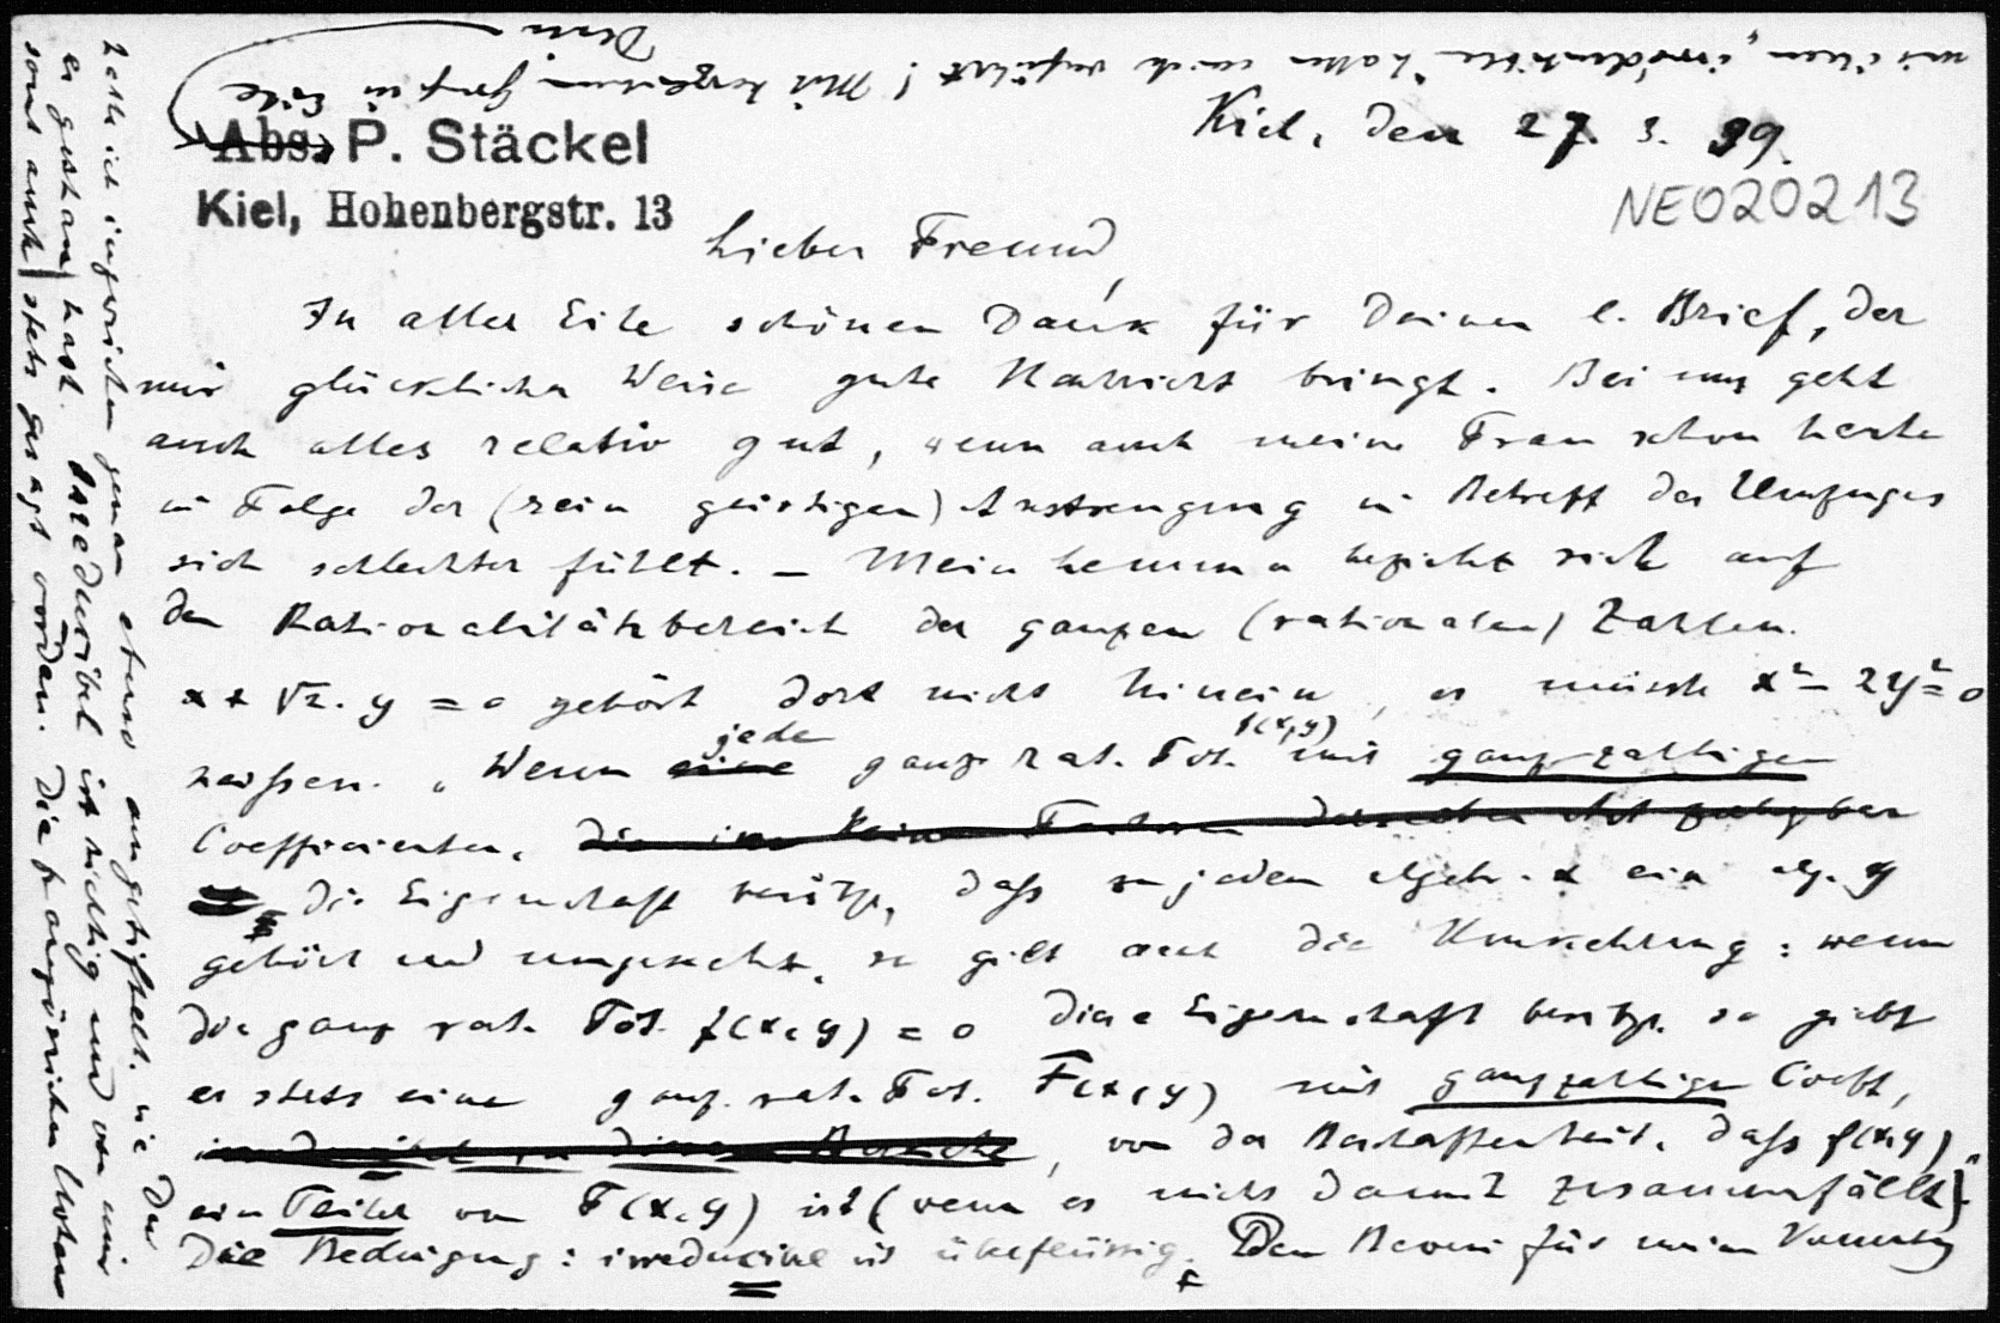 Kiel, den 27. 3. 99.
NE020213
Abs. P. Stäckel
Kiel, Hohenbergstr. 13
Lieber Freund,
In aller Eile schönen Dank für Deinen l. Brief, der
mir glücklicher Weise gute Nachricht bringt. Bei uns geht
auch alles relativ gut, wenn auch meine Frau schon heute
in Folge der (rein geistigen) Anstrengung in Betreff des Umzuges
sich schlechter fühlt. – Mein Lemma bezieht sich auf
den Rationalitätsbereich der ganzen (rationalen) Zahlen.
x + √2. y = 0 gehört dort nicht hinein, es müsste x² – 2y² = 0
heissen. „Wenn eine jede ganz. rat. Fct. f(x,y) mit ganzzahligen
Coefficienten, die in keine Factoren derselben Art zerlegbar
die Eigenschaft besitzt, dass zu jedem algebr. x ein alg. y
gehört und umgekehrt, so gilt auch die Umkehrung: wenn
die ganz rat. Fct. f(x,y) = 0 diese Eigenschaft besitzt, so giebt
es stets eine ganz. rat. Fct. F(x,y) mit ganzzahligen Coeff,
von der Beschaffenheit, dass f(x,y)
ein Teiler von F(x,y) ist (wenn es nicht damit zusammenfällt)“
Die Bedingung: irreducibel ist überflüssig. Den Beweis für meine
Zettel ich inzwischen genau ebenso angestiftelt, wie Du
es gethan hast. Irreducibel ist richtig und von mir
sonst auch stets gesagt worden. Die französischen Noten
mit ihrem „irréductible“ hatten mich verführt! Mit herzlichem Gruß in Eile
Dein